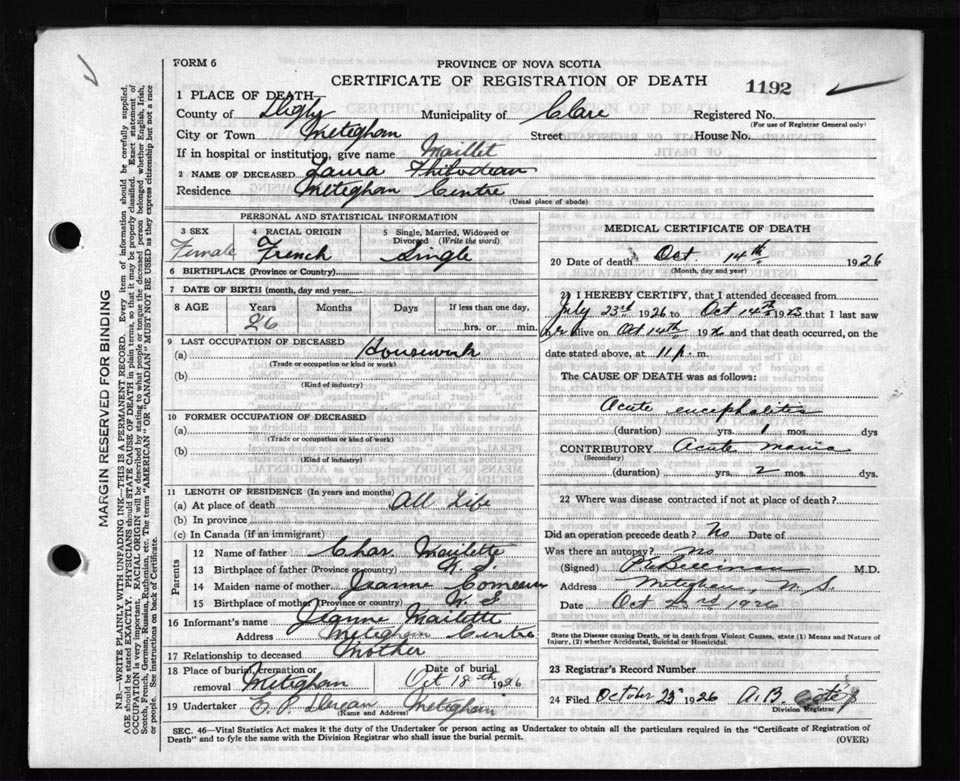 FORM 6
PROVINCE OF NOVA SCOTIA
CERTIFICATE OF REGISTRATION OF DEATH
1192
1 PLACE OF DEATH—
County of Digby Municipality of Clare Registered No.
(For use of Registrar General only)
City or Town Meteghan Street House No.
If in hospital or institution, give name Maillet
2 NAME OF DECEASED Laura
Residence Meteghan Centre
(Usual place of abode)
PERSONAL AND STATISTICAL INFORMATION
3 SEX 4 RACIAL ORIGIN 5 Single, Married, Widowed or Divorced (Write the word)
Female French Single
6 BIRTHPLACE (Province or Country)
7 DATE OF BIRTH (month, day and year)
8 AGE Years Months Days If less than one day,
26 hrs. or min.
9 LAST OCCUPATION OF DECEASED
(a) Housework
(Trade or occupation or kind or work)
(b)
(Kind of industry)
10 FORMER OCCUPATION OF DECEASED
(a)
(Trade or occupation or kind of work)
(b)
(Kind of Industry)
11 LENGTH OF RESIDENCE (In years and months)
(a) At place of death All Life
(b) In province
(c) In Canada (if an immigrant)
Parents
12 Name of father Chas. Mailette
13 Birthplace of father (Province or country) N.S.
14 Maiden name of mother Jeanne Comeau
15 Birthplace of mother (Province or country) N.S.
16 Informant's name Jeanne Mailette
Address Meteghan Centre
17 Relationship to deceased Mother
18 Place of burial, cremation or removal Meteghan
Date of burial Oct 18th 1926
19 Undertaker Meteghan
(Name and Address)
MEDICAL CERTIFICATE OF DEATH
20 Date of death Oct 14th 1926
(Month, day and year)
21 I HEREBY CERTIFY, that I attended deceased from
July 23rd 1926 to Oct 14th 192 that I last saw
her alive on Oct 14th 1926 and that death occurred, on the
date stated above, at 11 p. m.
The CAUSE OF DEATH was as follows:
Acute encephalitis
(duration) yrs. 1 mos. dys
CONTRIBUTORY Acute mania
(Secondary)
(duration) yrs. 2 mos. dys.
22 Where was disease contracted if not at place of death?
Did an operation precede death? No Date of
Was there an autopsy? No
(Signed) M.D.
Address Meteghan, N.S.
Date Oct 1926
State the Disease causing Death, or in death from Violent Causes, state (1) Means and Nature of Injury, (2) whether Accidental, Suicidal or Homicidal.
23 Registrar's Record Number
24 Filed October 23 1926 A. B.
Division Registrar
SEC. 46—Vital Statistics Act makes it the duty of the Undertaker or person acting as Undertaker to obtain all the particulars required in the "Certificate of Registration of
Death" and to fyle the same with the Division Registrar who shall issue the burial permit.
(OVER)
MARGIN RESERVED FOR BINDING
N.B.—WRITE PLAINLY WITH UNFADING INK—THIS IS A PERMANENT RECORD. Every item of information should be carefully supplied.
AGE should be stated EXACTLY. PHYSICIANS should STATE CAUSE OF DEATH in plain terms, so that it may be properly classified. Exact statement of
OCCUPATION is very important. RACIAL ORIGIN will be described by stating to what people or tongue the deceased person belonged whether English, Irish,
Scotch, French, German, Russian, Ruthenian, etc. The terms "AMERICAN" OR "CANADIAN" MUST NOT BE USED as they express citizenship but not a race
or people. See instructions on back of Certificate.